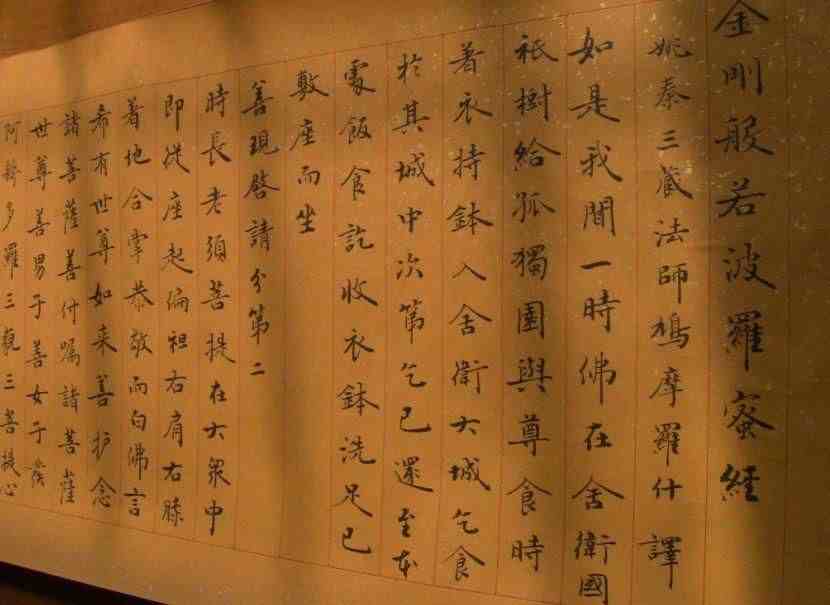 金剛般若波羅蜜經
姚秦三藏法師鳩摩羅什譯
如是我聞一時佛在舍衛國
祇樹給孤獨園與尊食時
著衣持鉢入舍衛大城乞食
於其城中次第乞已還至本
處飯食訖收衣鉢洗足已
敷座而坐
善現啓請分第二
時長老須菩提在大眾中
即從座起偏袒右肩右膝
着地合掌恭敬而白佛言
希有世尊如来善护念
諸菩薩善付嘱諸菩薩
世尊善男子善女子發
阿耨多羅三藐三菩提心